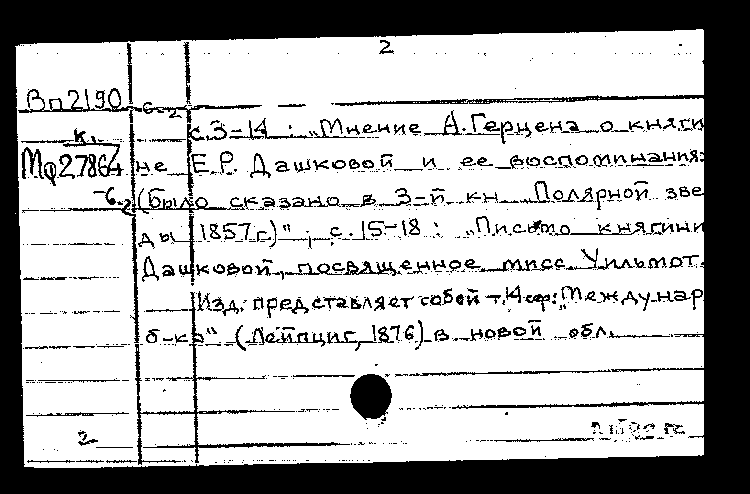 2
Вп2190 6-2
к. с. 3-14 : „Мнение А. Герцена о княги
Мф27864 не Е.Р. Дашковой и ее воспоминаниях
-6-2 (было сказано в 3-й кн „Полярной зве
ды 1857г.)" ; с. 15-18 : „Письмо княгини
Дашковой, посвященное мисс Уильмот.
Изд. представляет собой т. 14 ср: „Междунар
б-ка" (Лейпциг, 1876) в новой обл.
2